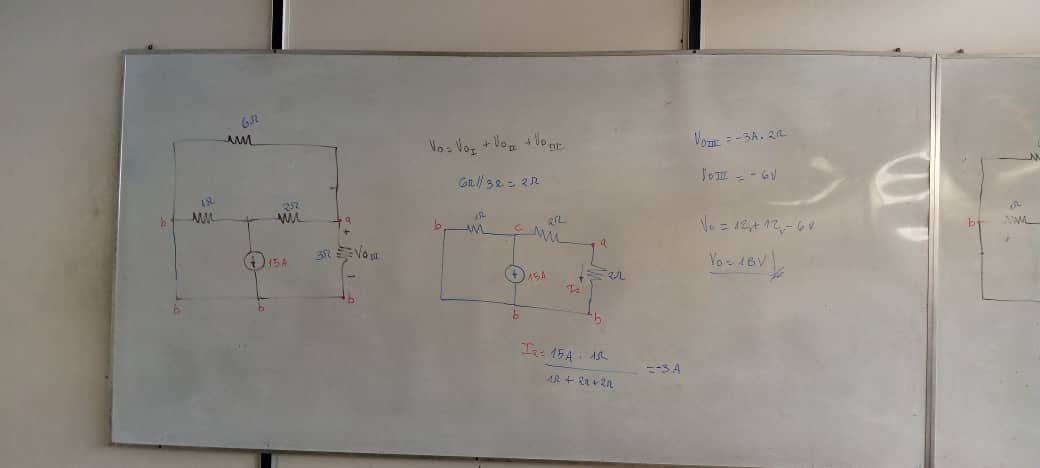 6Ω
1Ω
2Ω
b
a
+
15A
3Ω
Vo III
-
b
b
b
Vo = Vo I + Vo II + Vo III
6Ω // 3Ω = 2Ω
1Ω
b
c
2Ω
a
15A
I2
2Ω
b
b
I2 = 15A . 1Ω
1Ω + 2Ω + 2Ω
= -3A
Vo III = -3A . 2Ω
Vo III = -6V
Vo = 12V + 12V - 6V
Vo = 18V
b
1Ω